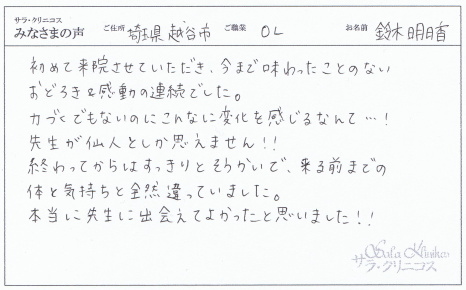 サラ・クリニコス
みなさまの声 ご住所 埼玉県越谷市 ご職業 OL お名前 鈴木明日香
初めて来院させていただき、今まで味わったことのない
おどろき&感動の連続でした。
力づくでもないのにこんなに変化を感じるなんて…!
先生が仙人としか思えません!!
終わってからはすっきりとそうかいで、来る前までの
体と気持ちと全然違っていました。
本当に先生に出会えてよかったと思いました!!
Sala Klinikos
サラ・クリニコス